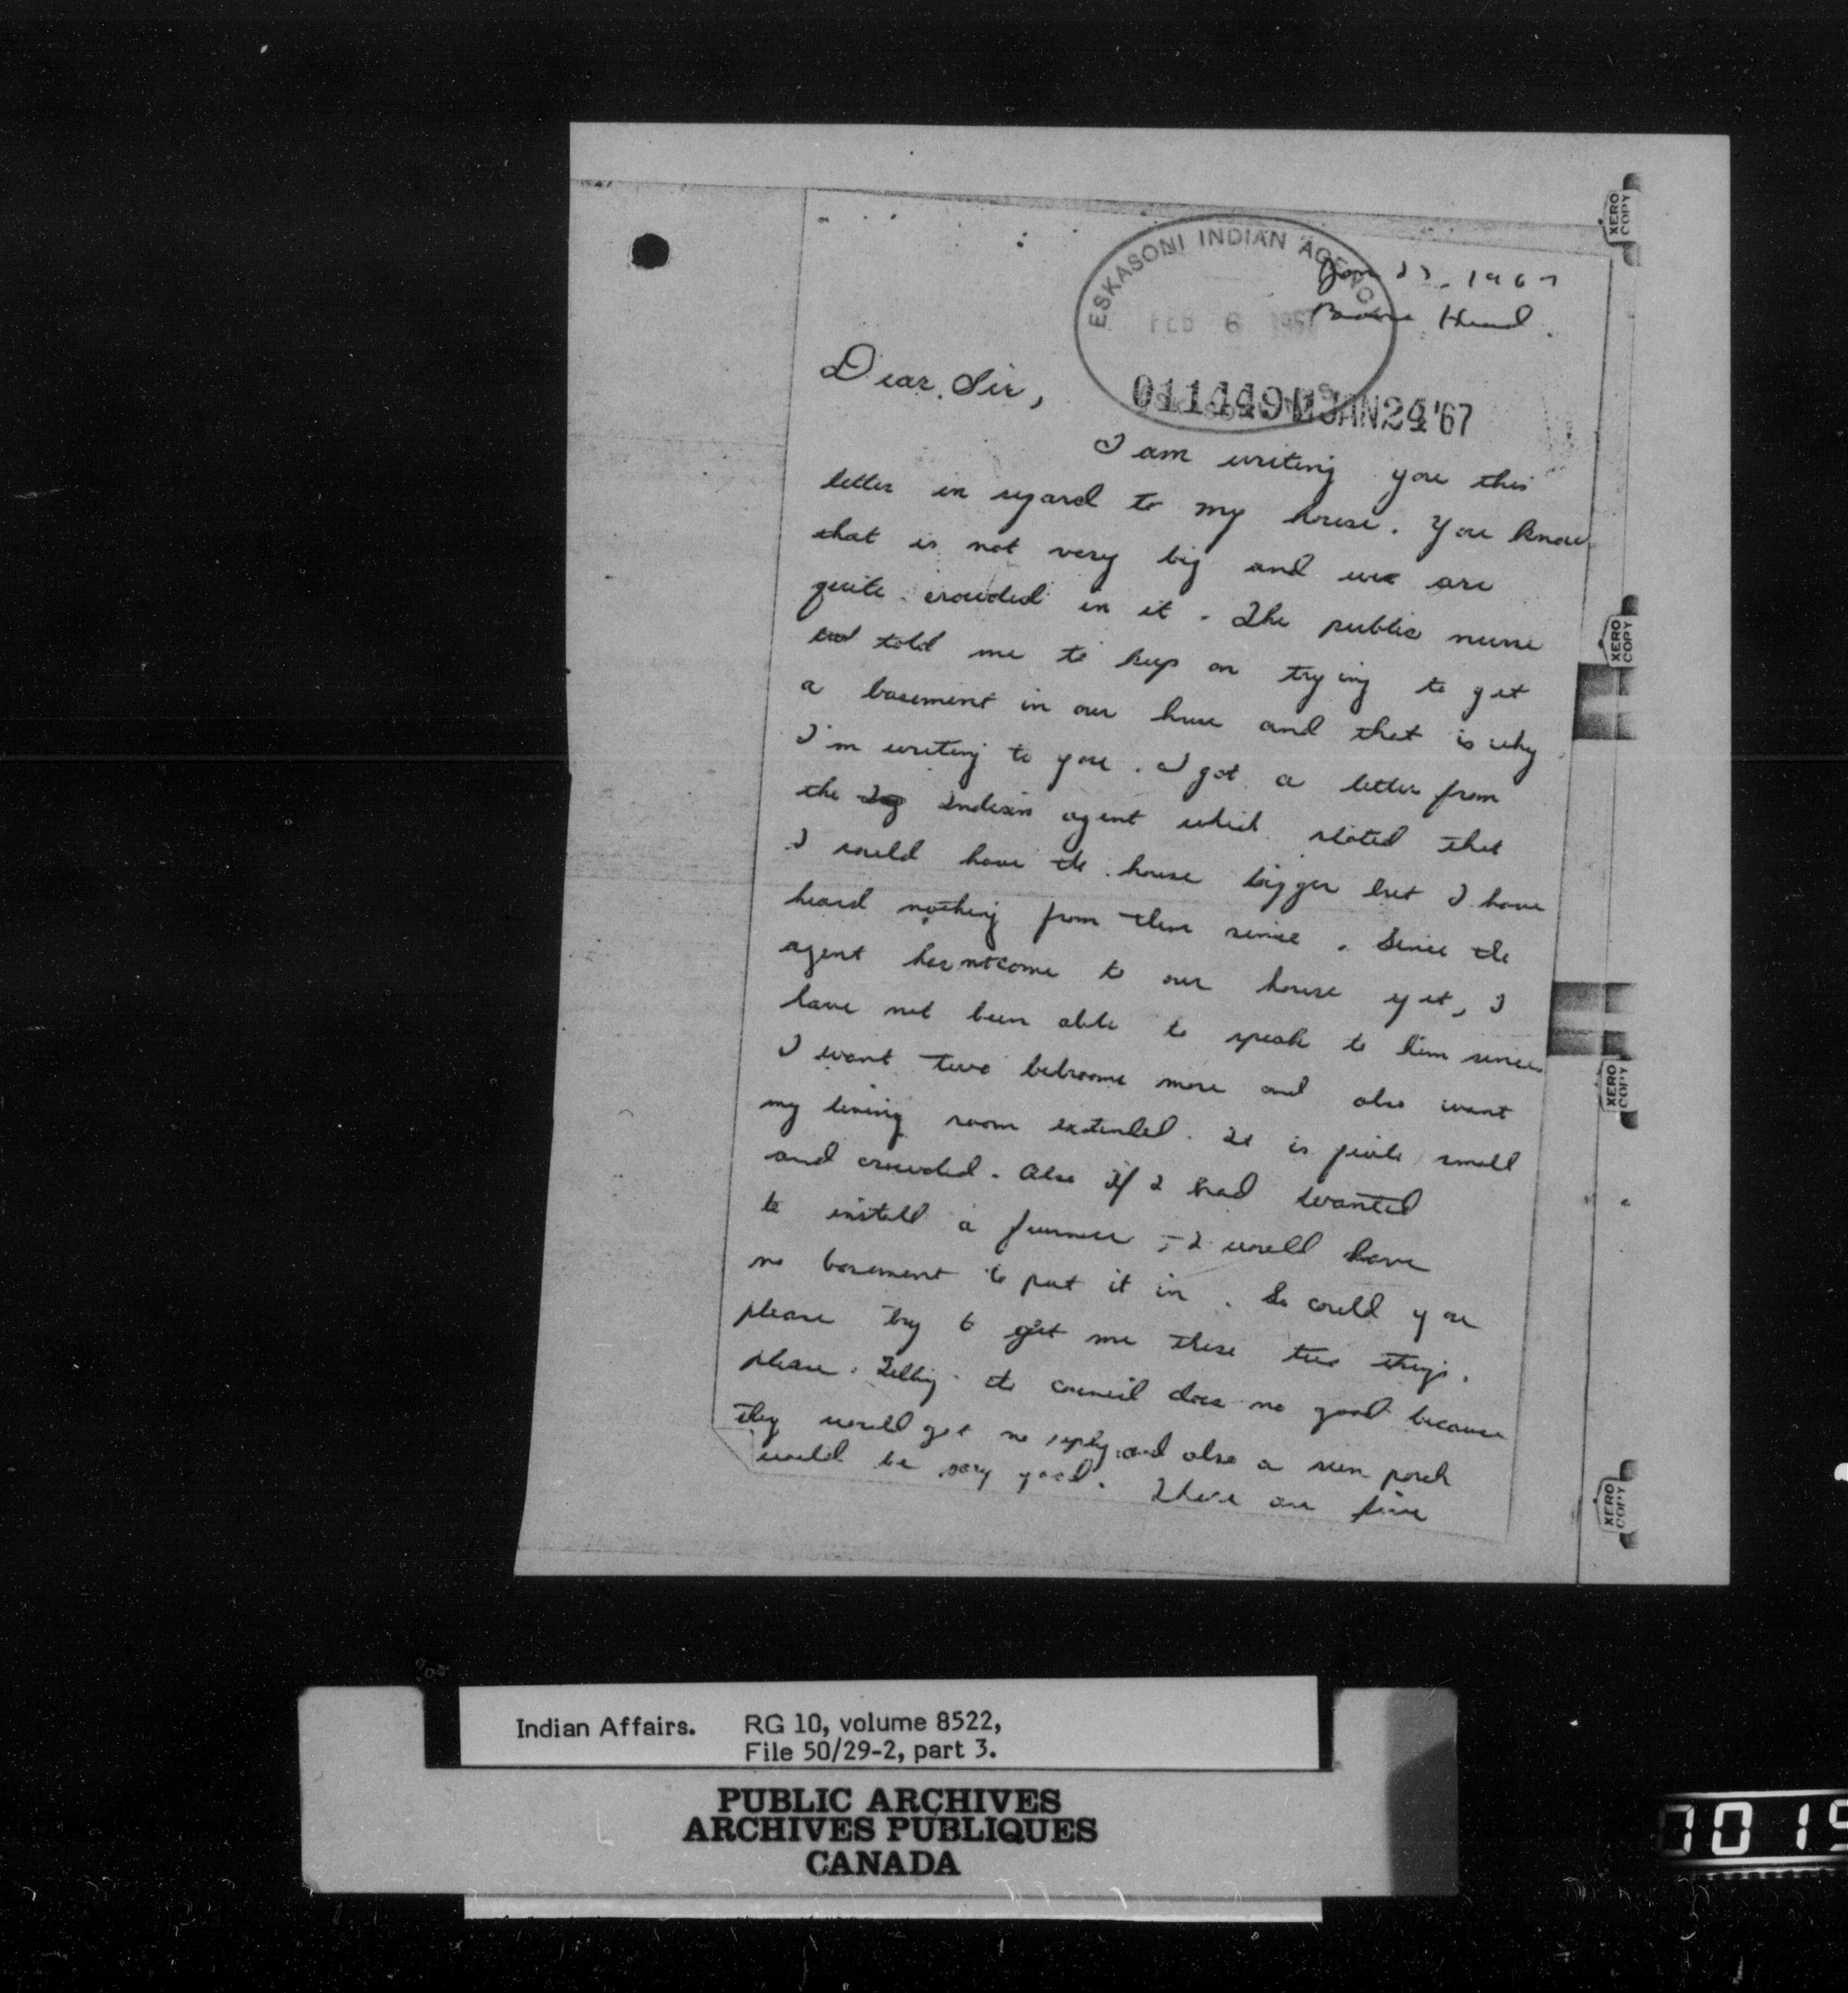 ESKASONI INDIAN AGENCY
Jan 23, 1967
FEB 6 1967
Head.
Dear Sir,
011449 JAN24'67
I am writing you this
letter in regard to my house. You know
that is not very big and we are
quite crowded in it. The public nurse
told me to keep on trying to get
a basement in our house and that is why
I'm writing to you. I got a letter from
the Indian agent which stated that
I could have the house bigger but I have
heard nothing from them since. Since the
agent has not come to our house yet, I
have not been able to speak to him since
I want two bedrooms more and also want
my living room extended. It is quite small
and crowded. Also if I had wanted
to install a furnace, I would have
no basement to put it in. So could you
please try to get me these two things.
please. Telling the council does no good because
they would get no reply and also a sun porch
would be very good. There are five
XERO COPY
XERO COPY
XERO COPY
XERO COPY
Indian Affairs. RG 10, volume 8522,
File 50/29-2, part 3.
PUBLIC ARCHIVES
ARCHIVES PUBLIQUES
CANADA